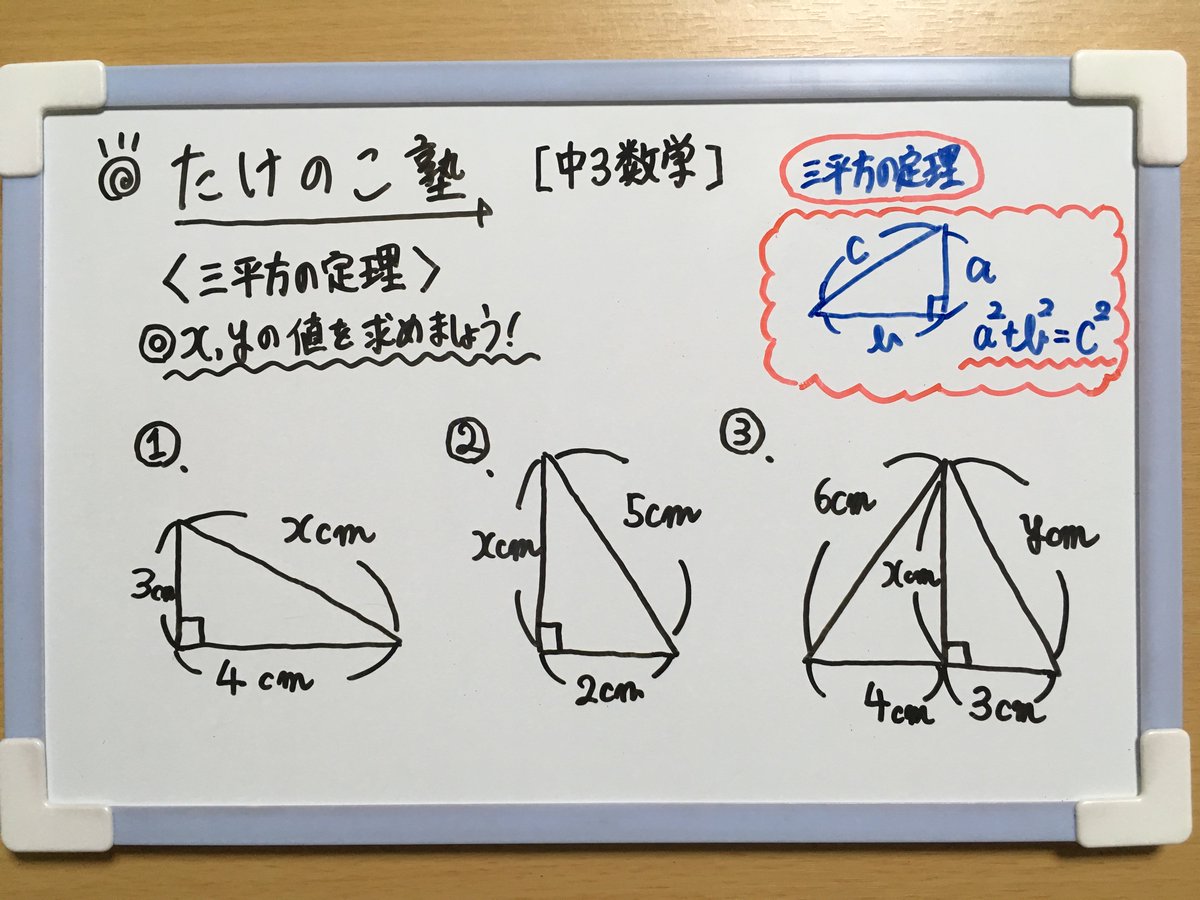 たけのこ塾
[中3数学]
三平方の定理
〈三平方の定理〉
◎x,yの値を求めましょう!
c
a
b
a²+b²=c²
①.
xcm
3cm
4cm
②.
5cm
xcm
2cm
③.
6cm
ycm
xcm
4cm
3cm